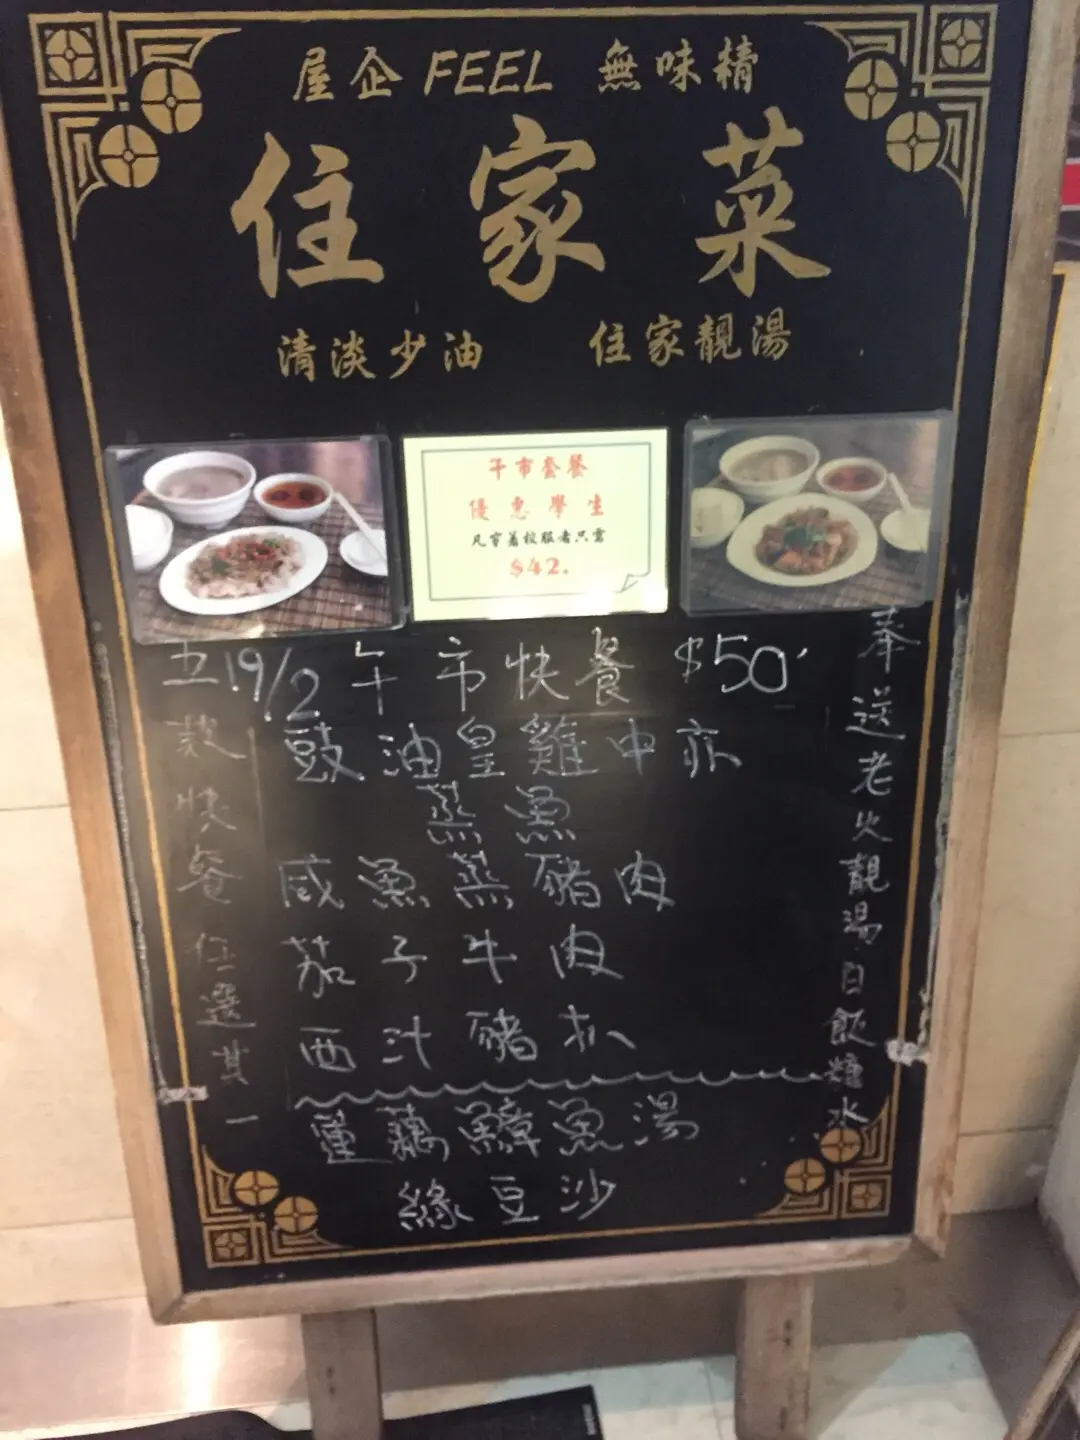 屋企 FEEL 無味精
住家菜
清淡少油 住家靚湯
午市套餐
優惠學生
凡穿着校服者只需
$42.
19/2 午市快餐 $50
五款快餐任選其一
豉油皇雞中亦
蒸魚
咸魚蒸豬肉
茄子牛肉
西汁豬扒
蓮藕鱆魚湯
綠豆沙
奉送老火靚湯白飯糖水